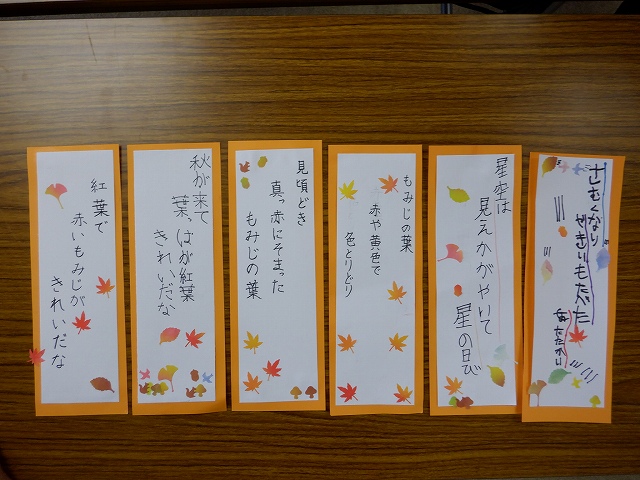 さむくなり
星空は
見えかがやいて
星の日び
もみじの葉
赤や黄色で
色とりどり
見頃どき
真っ赤にそまった
もみじの葉
秋が来て
葉、はが紅葉
きれいだな
紅葉で
赤いもみじが
きれいだな